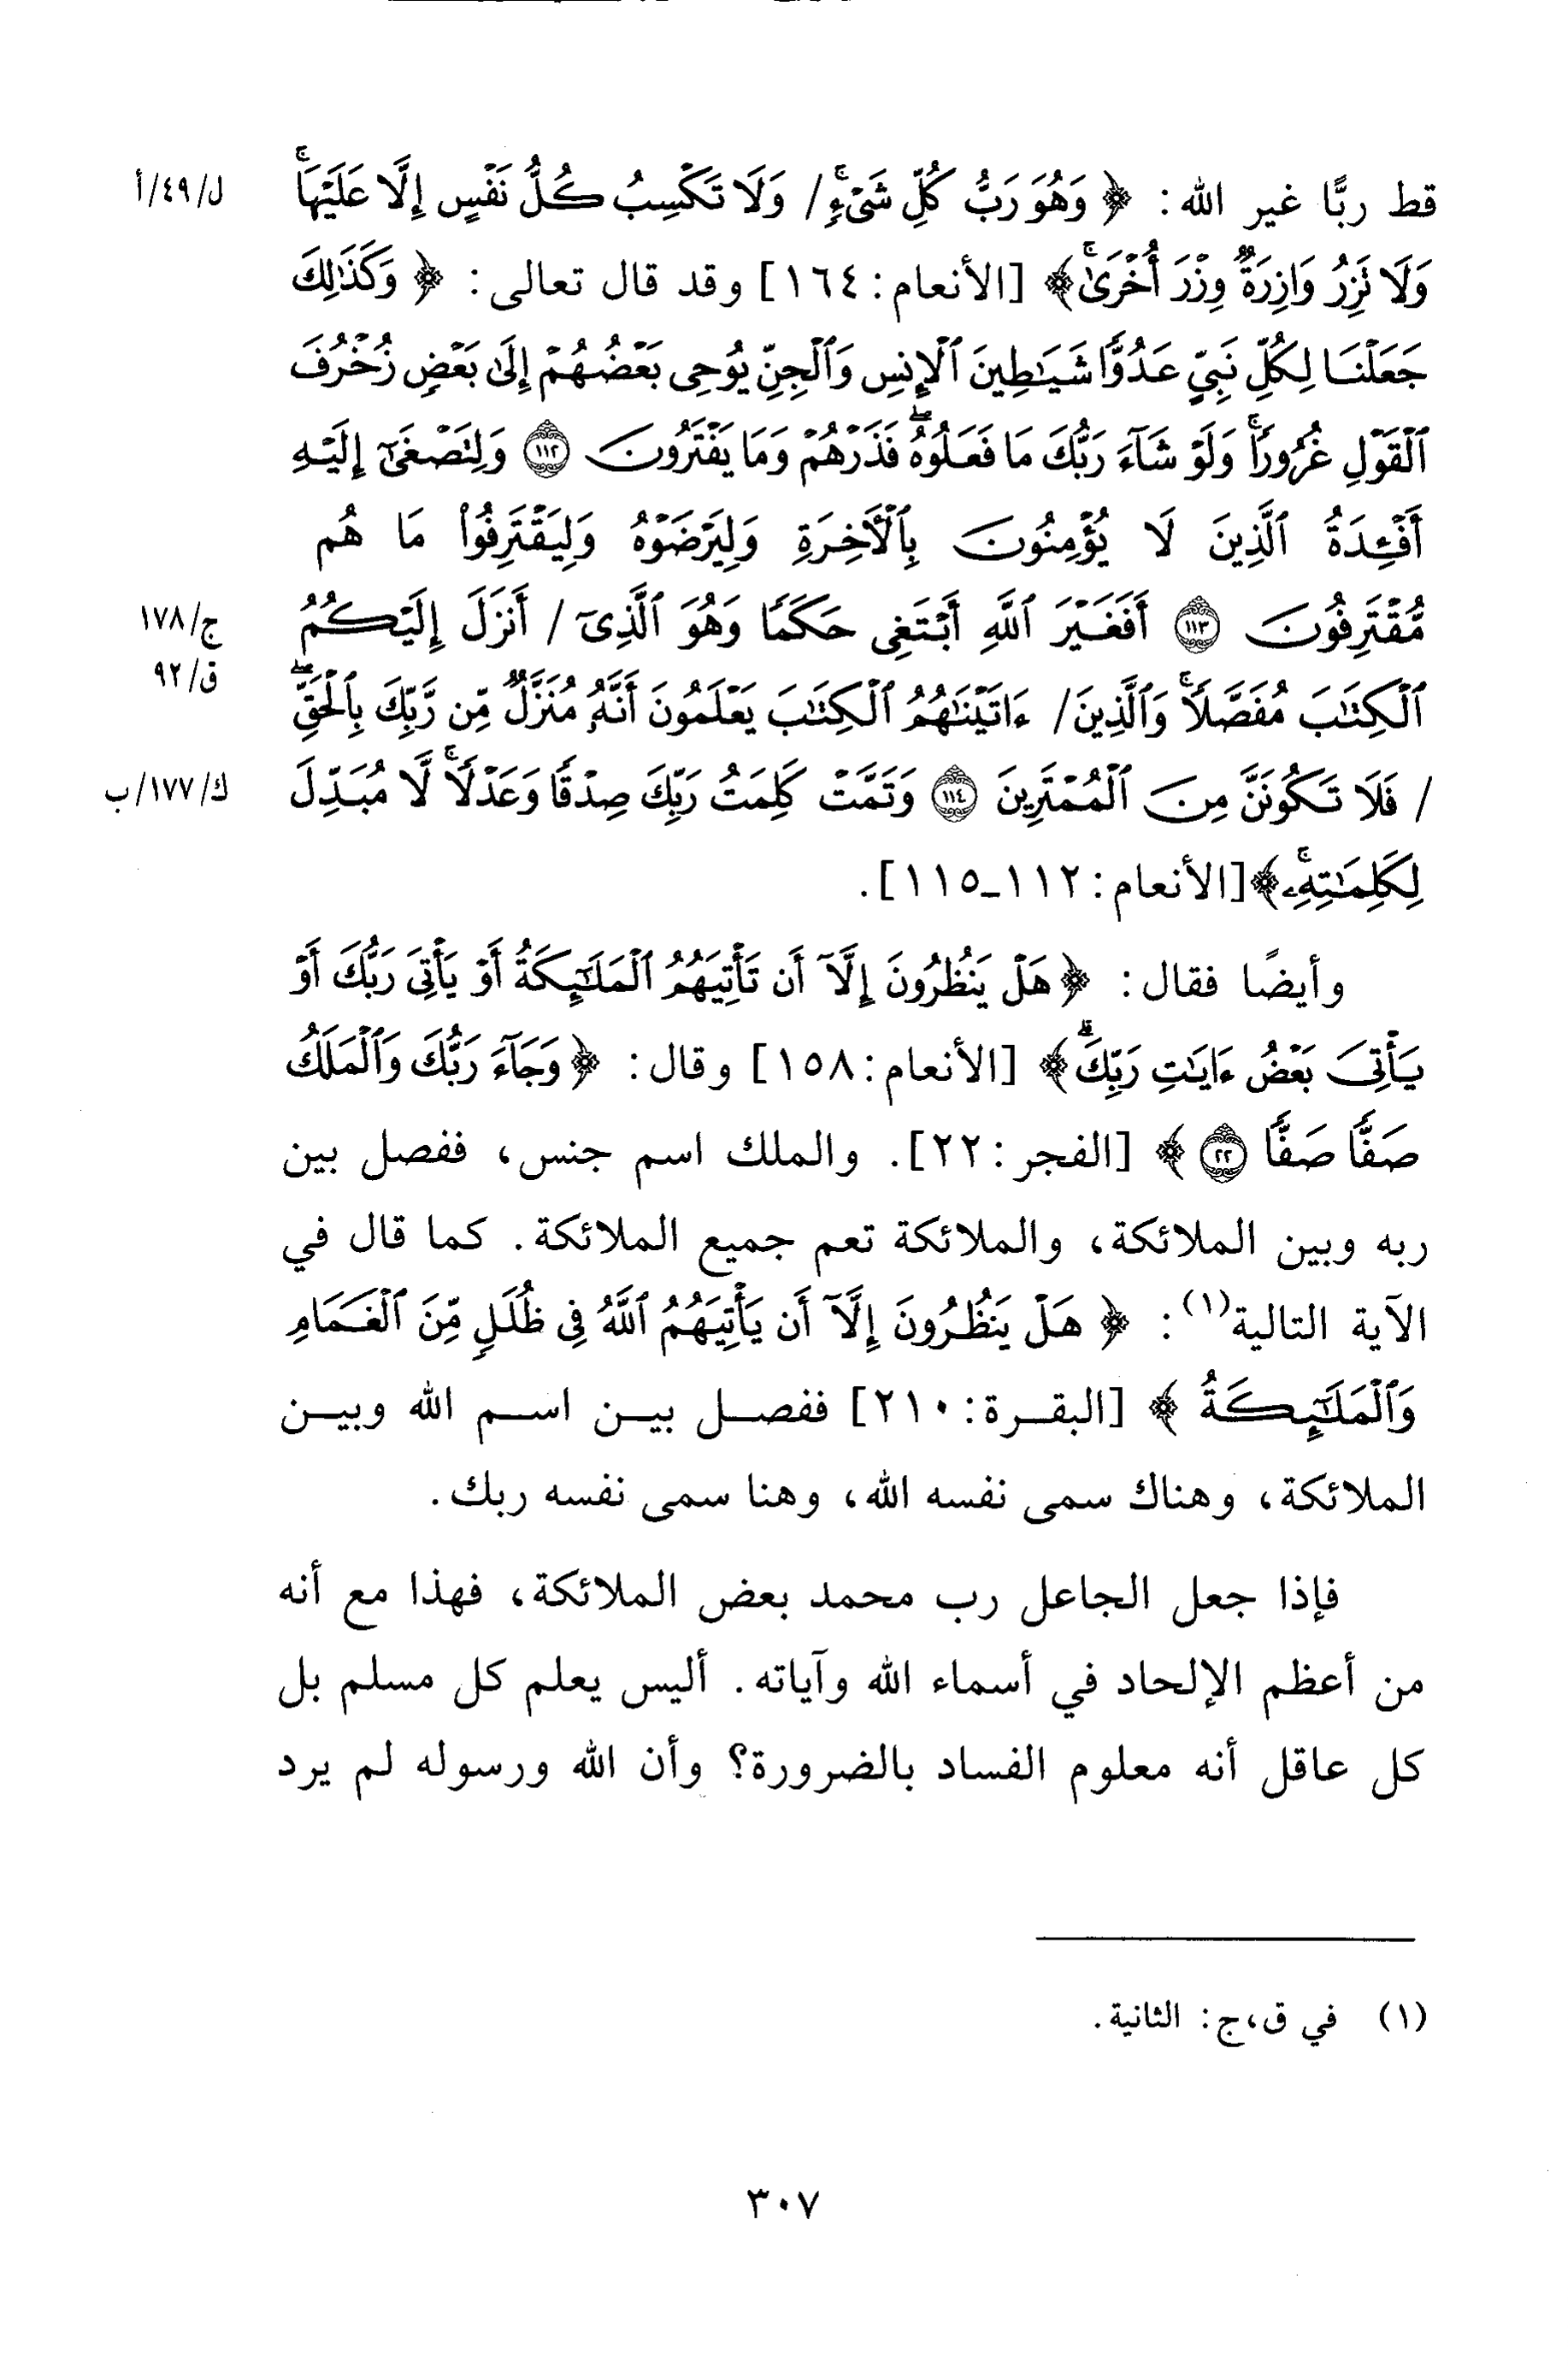 قط ربًّا غير الله: ﴿ وَهُوَ رَبُّ كُلِّ شَىْءٍۚ/ وَلَا تَكْسِبُ كُلُّ نَفْسٍ إِلَّا عَلَيْهَاۚ ل/٤٩/أ
وَلَا تَزِرُ وَازِرَةٌ وِزْرَ أُخْرَىٰۚ﴾ [الأنعام: ١٦٤] وقد قال تعالى: ﴿ وَكَذَٰلِكَ
جَعَلْنَا لِكُلِّ نَبِىٍّ عَدُوًّا شَيَـٰطِينَ ٱلْإِنسِ وَٱلْجِنِّ يُوحِى بَعْضُهُمْ إِلَىٰ بَعْضٍ زُخْرُفَ
ٱلْقَوْلِ غُرُورًاۚ وَلَوْ شَآءَ رَبُّكَ مَا فَعَلُوهُۖ فَذَرْهُمْ وَمَا يَفْتَرُونَ ١١٢ وَلِتَصْغَىٰٓ إِلَيْهِ
أَفْـِٔدَةُ ٱلَّذِينَ لَا يُؤْمِنُونَ بِٱلْـَٔاخِرَةِ وَلِيَرْضَوْهُ وَلِيَقْتَرِفُوا۟ مَا هُم
مُّقْتَرِفُونَ ١١٣ أَفَغَيْرَ ٱللَّهِ أَبْتَغِى حَكَمًا وَهُوَ ٱلَّذِىٓ / أَنزَلَ إِلَيْكُمُ ج/١٧٨
ق/٩٢
ٱلْكِتَـٰبَ مُفَصَّلًاۚ وَٱلَّذِينَ/ ءَاتَيْنَـٰهُمُ ٱلْكِتَـٰبَ يَعْلَمُونَ أَنَّهُۥ مُنَزَّلٌ مِّن رَّبِّكَ بِٱلْحَقِّۖ
/ فَلَا تَكُونَنَّ مِنَ ٱلْمُمْتَرِينَ ١١٤ وَتَمَّتْ كَلِمَتُ رَبِّكَ صِدْقًا وَعَدْلًاۚ لَّا مُبَدِّلَ ك/١٧٧/ب
لِكَلِمَـٰتِهِۦۚ﴾[الأنعام: ١١٢ـ١١٥].
وأيضًا فقال: ﴿هَلْ يَنظُرُونَ إِلَّآ أَن تَأْتِيَهُمُ ٱلْمَلَـٰٓئِكَةُ أَوْ يَأْتِىَ رَبُّكَ أَوْ
يَأْتِىَ بَعْضُ ءَايَـٰتِ رَبِّكَۗ﴾ [الأنعام: ١٥٨] وقال: ﴿وَجَآءَ رَبُّكَ وَٱلْمَلَكُ
صَفًّا صَفًّا ٢٢ ﴾ [الفجر: ٢٢]. والملك اسم جنس، ففصل بين
ربه وبين الملائكة، والملائكة تعم جميع الملائكة. كما قال في
الآية التالية(١): ﴿ هَلْ يَنظُرُونَ إِلَّآ أَن يَأْتِيَهُمُ ٱللَّهُ فِى ظُلَلٍ مِّنَ ٱلْغَمَامِ
وَٱلْمَلَـٰٓئِكَةُ ﴾ [البقـرة: ٢١٠] ففصـل بيـن اسـم الله وبيـن
الملائكة، وهناك سمى نفسه الله، وهنا سمى نفسه ربك.
فإذا جعل الجاعل رب محمد بعض الملائكة، فهذا مع أنه
من أعظم الإلحاد في أسماء الله وآياته. أليس يعلم كل مسلم بل
كل عاقل أنه معلوم الفساد بالضرورة؟ وأن الله ورسوله لم يرد
(١) في ق،ج: الثانية.
٣٠٧